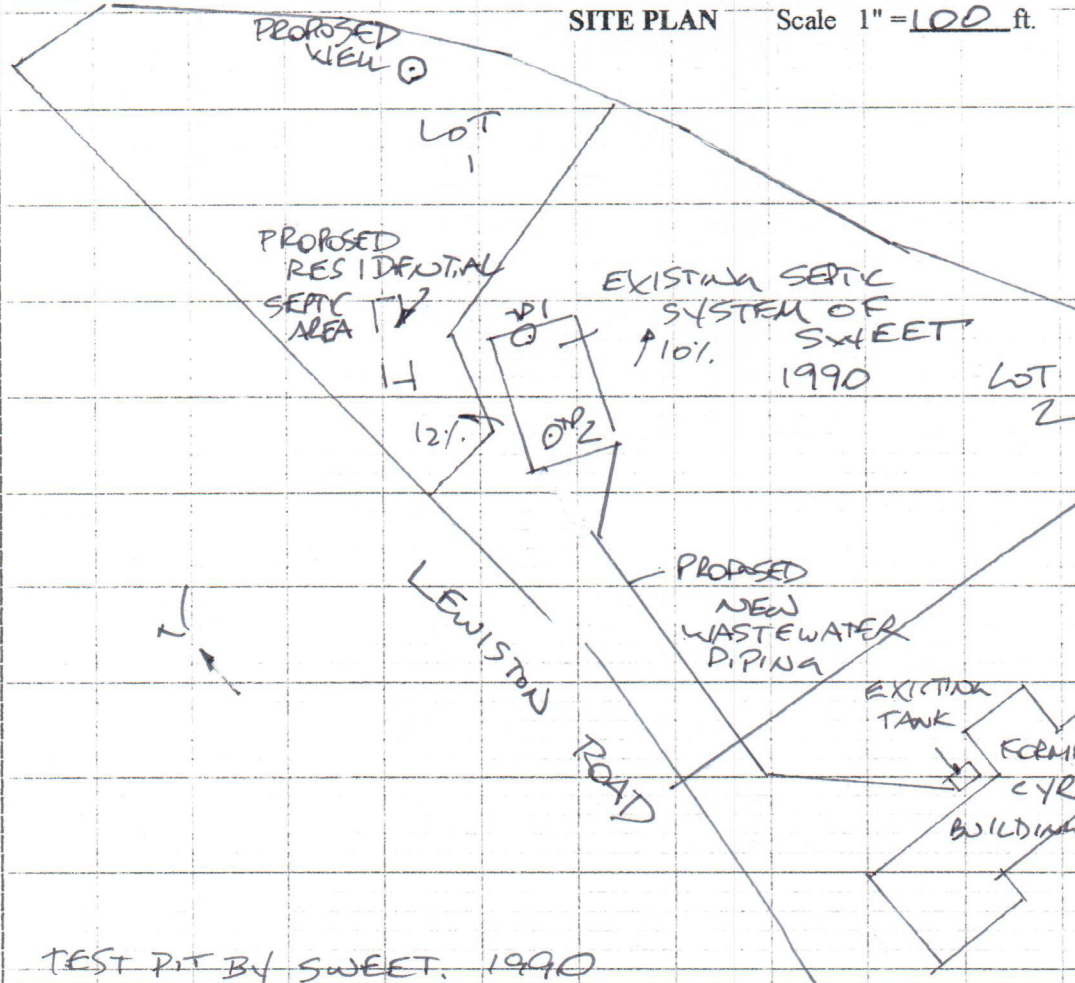 SITE PLAN Scale 1" = 100 ft.
PROPOSED
WELL
LOT
1
PROPOSED
RESIDENTIAL
SEPTIC
AREA
TP1
EXISTING SEPTIC
SYSTEM OF
SWEET
1990
10%
LOT
2
12%
TP2
LEWISTON
ROAD
N
PROPOSED
NEW
WASTEWATER
PIPING
EXISTING
TANK
CYR
BUILDING
TEST PIT BY SWEET. 1990